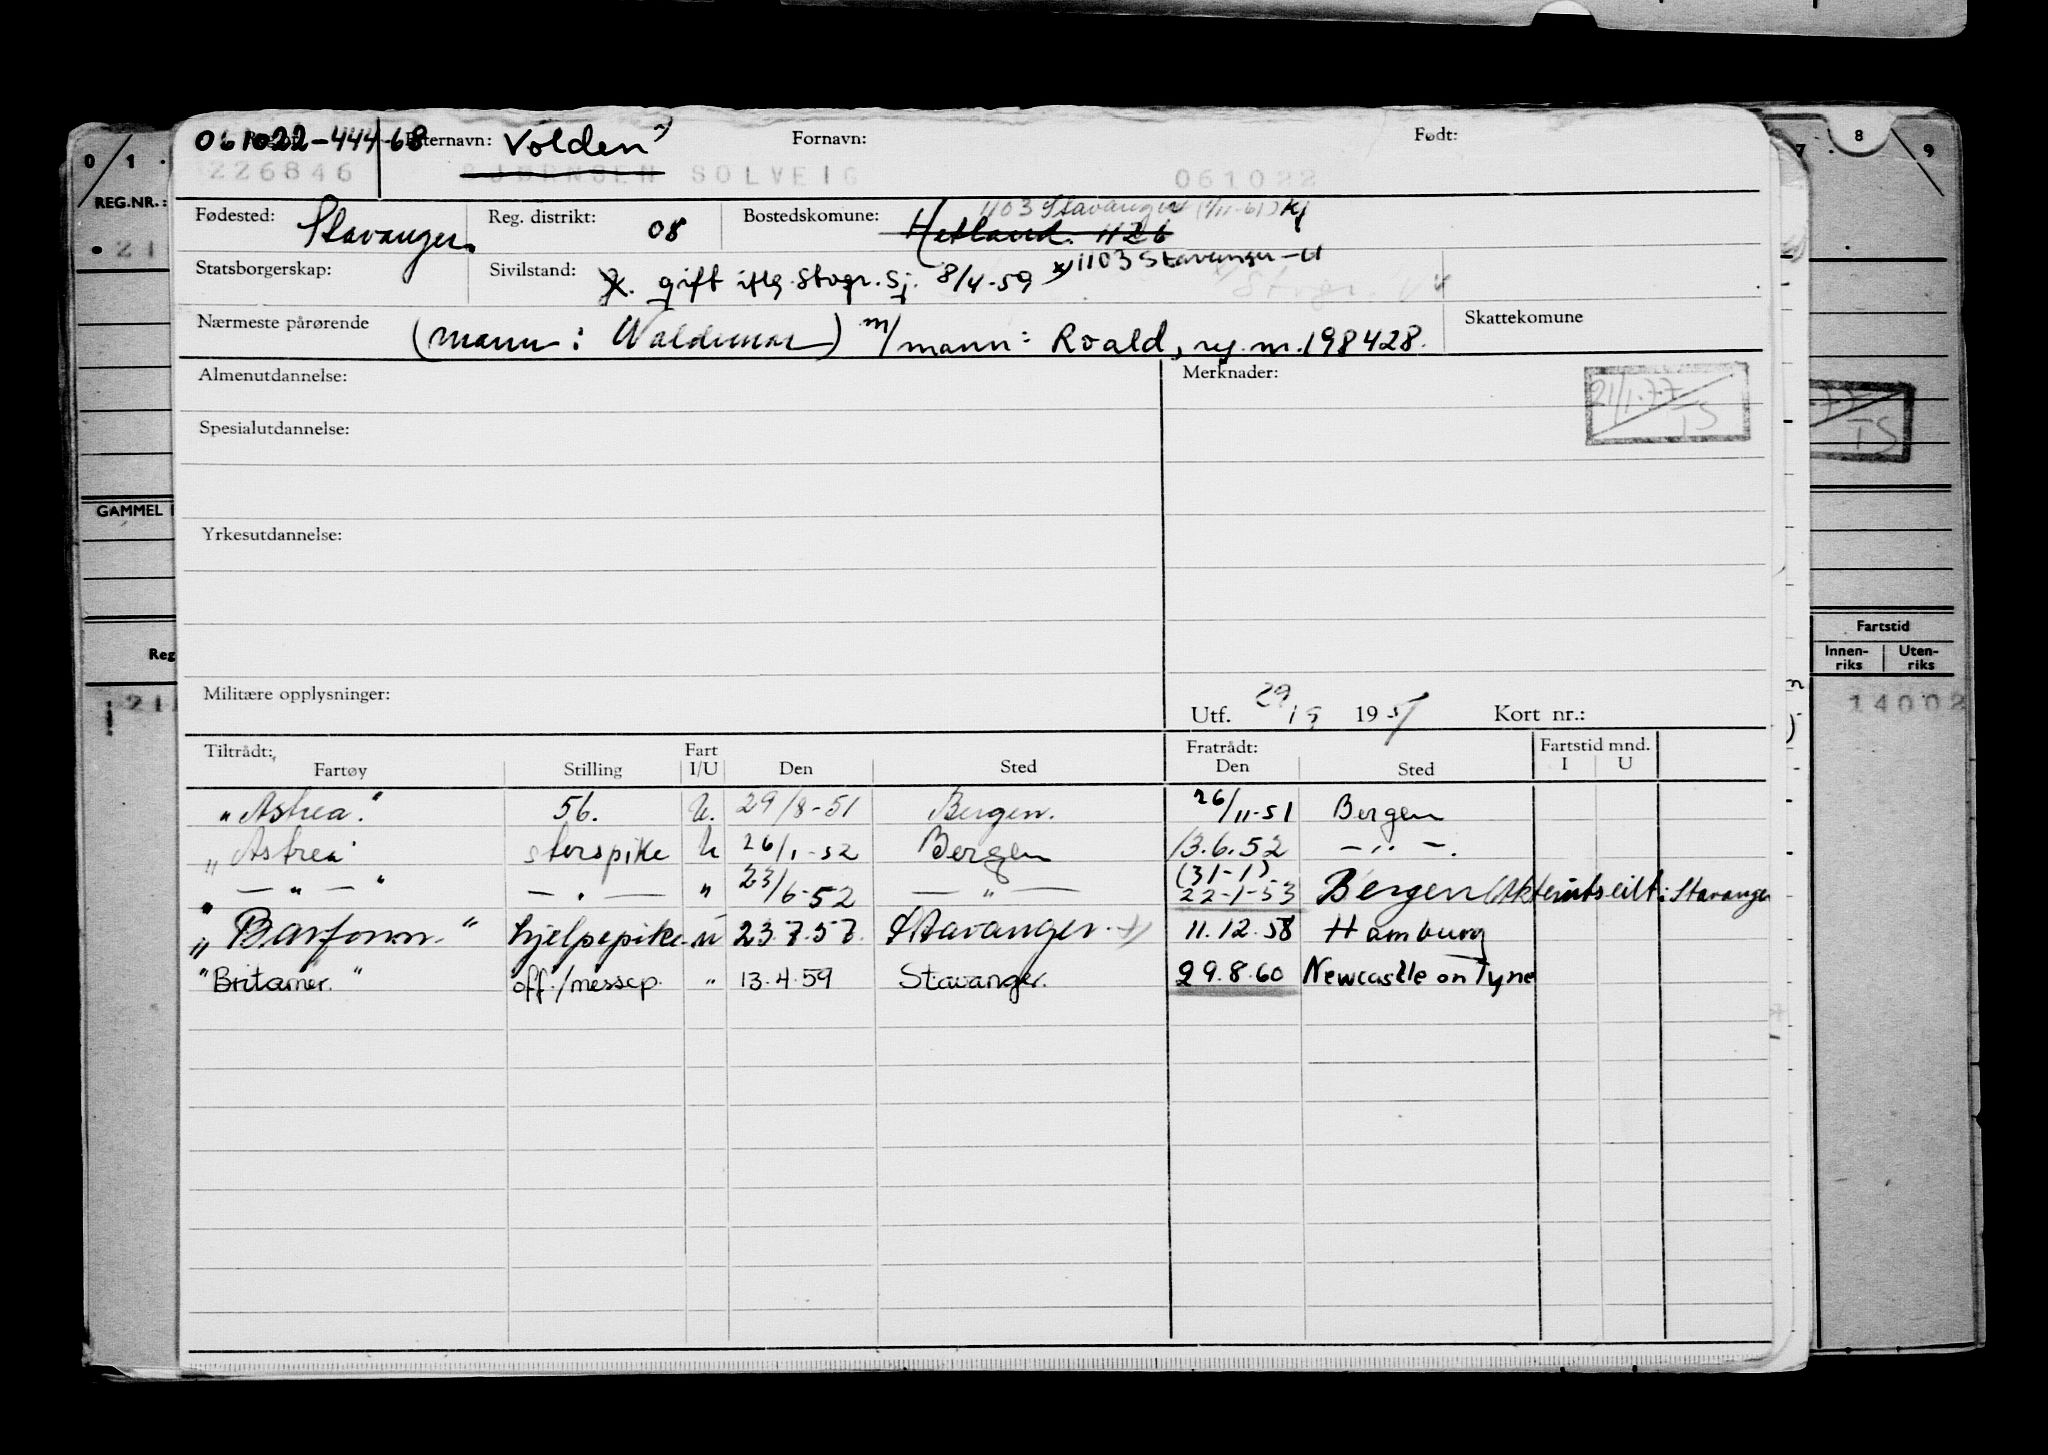 061022-444 68 Etternavn: Volden Fornavn: Født:
226846 SOLVEIG 061022
Fødested: Stavanger. Reg. distrikt: 08 Bostedskomune: 1103 Stavanger
Hetland. 1126
Statsborgerskap: Sivilstand: gift iflg. Stvgr. Sj. 8/4-59 x) 1103 Stavanger
Nærmeste pårørende (mann: Waldemar) m/mann: Roald, reg. nr. 198428. Skattekomune
Almenutdannelse: Merknader:
21/1-77
TS
Spesialutdannelse:
Yrkesutdannelse:
Militære opplysninger: Utf. 29 19 Kort nr.:
Tiltrådt: Fart Fratrådt: Fartstid mnd.
Fartøy Stilling I/U Den Sted Den Sted I U
"Astrea." 56. U. 29/8-51 Bergen. 26/11-51 Bergen
"Astrea" U 26/1-52 Bergen 13.6.52 — " —.
— " — — " — " 23/6-52 — " — (31-1) 22-1-53 Bergen Stavanger
"Barfonn." hjelpepike u 23.7.57. Stavanger. 11.12.58 Hamburg
"Britamer." off./messep. " 13.4.59 Stavanger. 29.8.60 Newcastle on Tyne
0 1 .
REG.NR.:
21
GAMMEL
Reg
21
7 . 8 9
TS
Fartstid
Innen-riks Uten-riks
14002